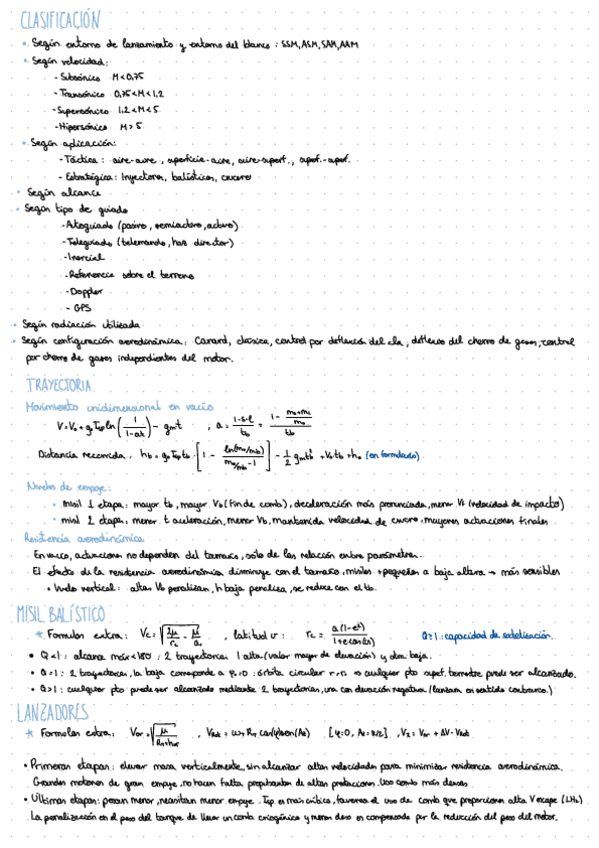 CLASIFICACIÓN
• Según entorno de lanzamiento y entorno del blanco : SSM, ASM, SAM, AAM
• Según velocidad:
- Subsónico M<0,75
- Transónico 0,75<M<1,2
- Supersónico 1,2<M<5
- Hipersónico M>5
• Según aplicación:
- Táctica : aire-aire, superficie-aire, aire-superf., superf.-superf.
- Estratégica: Inyectores, balísticos, crucero
• Según alcance
• Según tipo de guiado
- Autoguiado (pasivo, semiactivo, activo)
- Teleguiado (telemando, haz director)
- Inercial
- Referencia sobre el terreno
- Doppler
- GPS
• Según radiación utilizada
• Según configuración aerodinámica: Canard, clásica, control por deflexión del ala, deflexión del chorro de gases, control
por chorro de gases independientes del motor.
TRAYECTORIA
Movimiento unidimensional en vacío
V=V₀+g₀Isp ln(1/(1-at)) - gₘt ; a =
Distancia recorrida: h_b = g₀Isp t_b [1 - ln(m₀/m_b)/(m₀/m_b - 1)] - 1/2 gₘt_b² + V₀t_b + h₀ (en formulario)
Niveles de empuje:
• misil 1 etapa: mayor t_b, mayor V_b (fin de comb), deceleración más pronunciada, menor V_f (velocidad de impacto)
• misil 2 etapas: menor t aceleración, menor V_b, mantenida velocidad de crucero, mayores actuaciones finales
Resistencia aerodinámica
En vacío, actuaciones no dependen del tamaño, sólo de las relación entre parámetros.
El efecto de la resistencia aerodinámica disminuye con el tamaño, misiles + pequeños a baja altura → más sensibles
• Vuelo vertical: altas V_b penalizan, h baja penaliza, se reduce con el t_b.
MISIL BALÍSTICO
* Formulas extra: , latitud
Q≥1: capacidad de satelización.
• Q<1: alcance máx<180: 2 trayectorias 1 alta (valor mayor de elevación) y otra baja.
• Q=1: 2 trayectorias, la baja corresponde a φ=0: órbita circular r=r₁ ⇒ cualquier pto superf. terrestre puede ser alcanzado.
• Q>1: cualquier pto puede ser alcanzado mediante 2 trayectorias, una con elevación negativa (lanzam en sentido contrario.)
LANZADORES
* Formulas extra:
• Primeras etapas: elevar masa verticalmente, sin alcanzar altas velocidades para minimizar resistencia aerodinámica.
Grandes motores de gran empuje, no hacen falta propulsantes de altas prestaciones. Uso comb más densos
• Últimas etapas: pesan menor, necesitan menor empuje. Isp es más crítico, favorece el uso de comb que proporcionen alta Vescape (LH₂)
La penalización en el peso del tanque de llevar un comb criogénico y menos denso es compensada por la reducción del peso del motor.